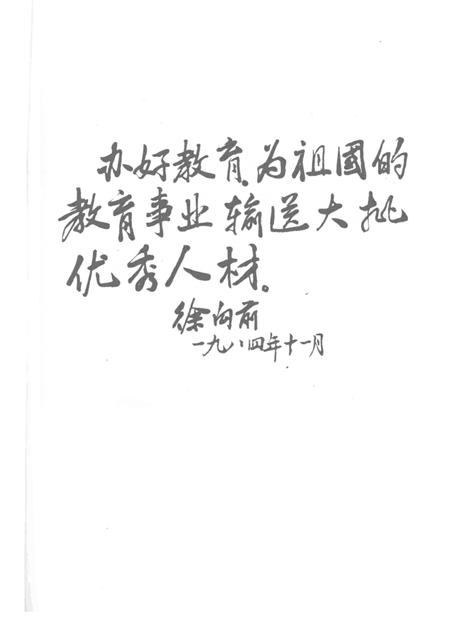 办好教育，为祖國的
教育事业输送大批
优秀人材。
徐向前
一九八四年十一月